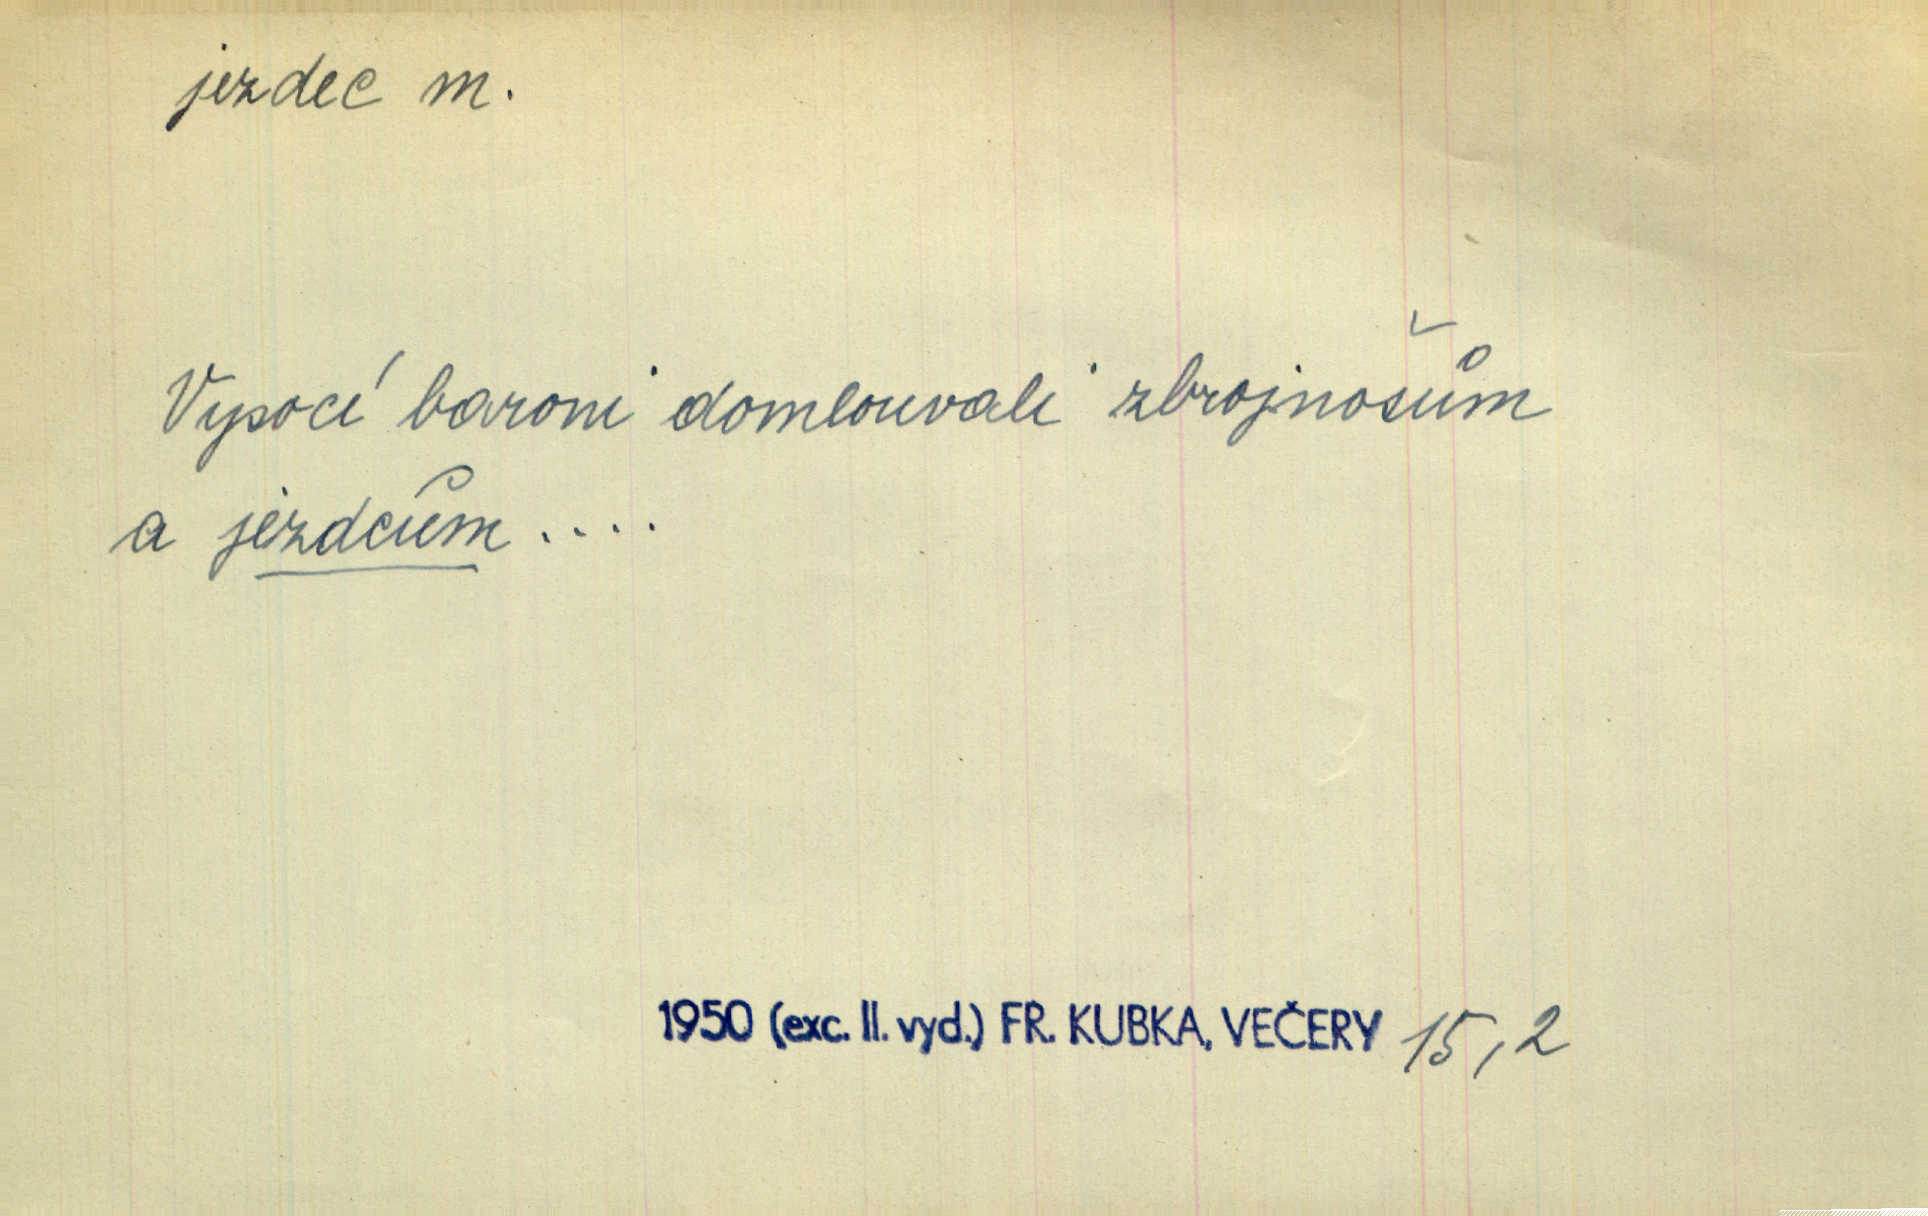 jezdec m.
Vysocí baroni domlouvali zbrojnošům
a jezdcům....
1950 (exc. II. vyd.) FR. KUBKA, VEČERY 15,2